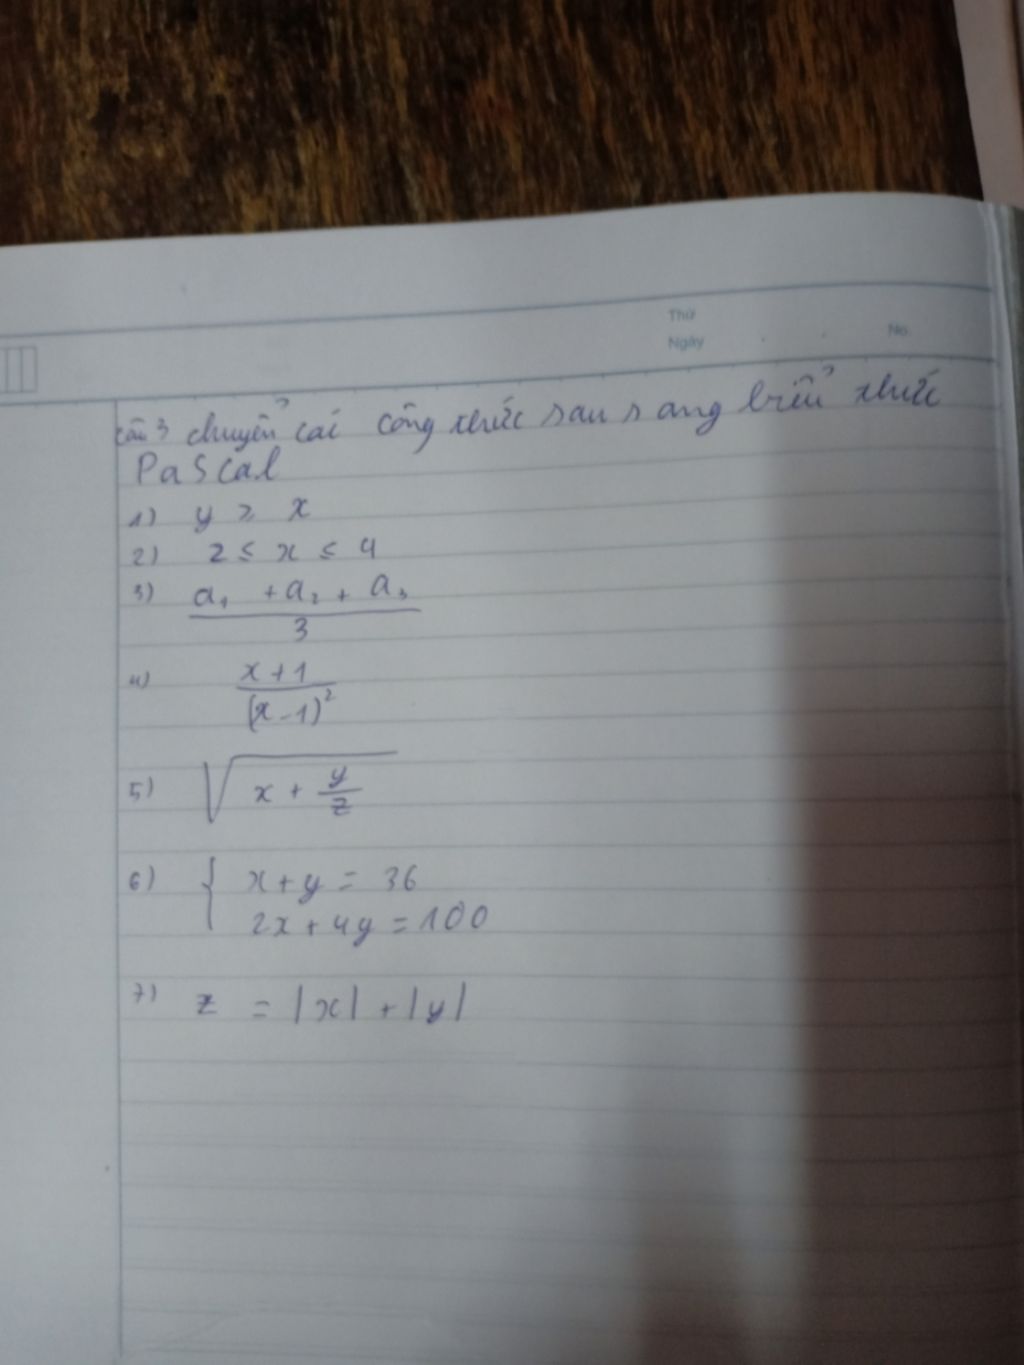 Thứ
Ngày No.
câu 3 chuyển các công thức sau sang biểu thức
Pascal
1) y ≥ x
2) 2 ≤ x ≤ 4
3) a₁ + a₂ + a₃
3
4) x + 1
(x - 1)²
5) √(x + y/z)
6) { x + y = 36
2x + 4y = 100
7) z = |x| + |y|